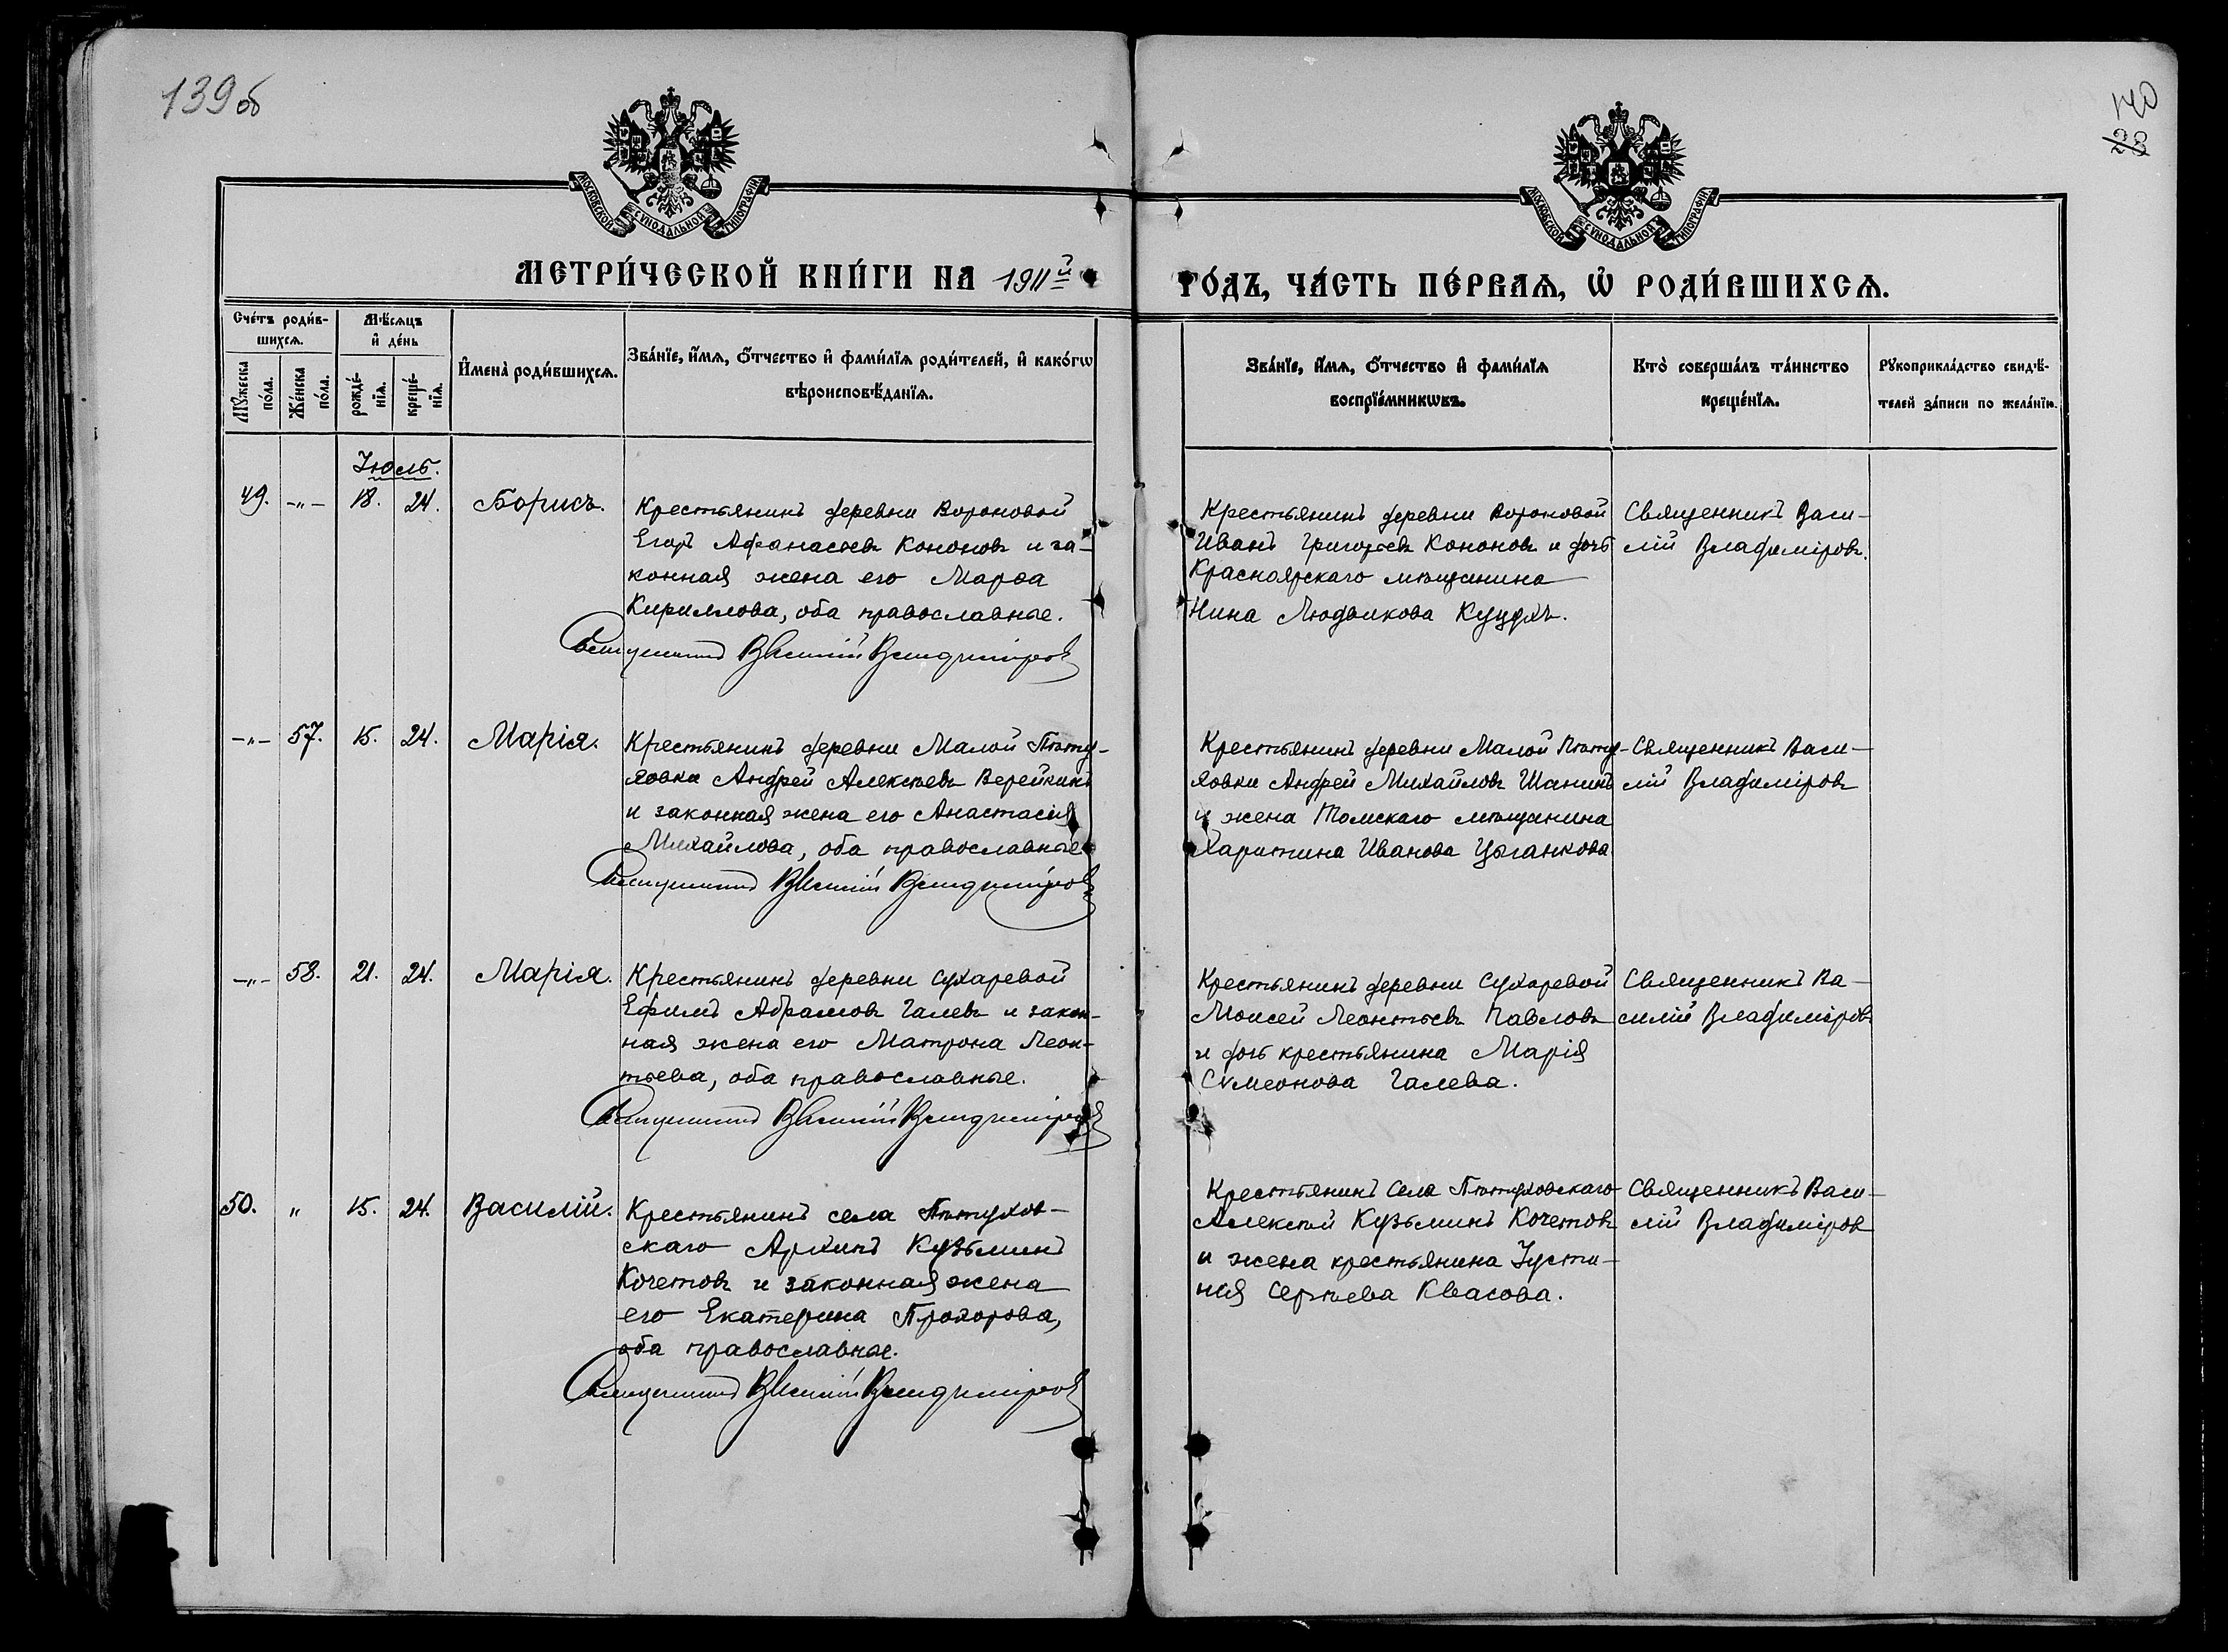 139об
140
28
МОСКОВСКОЙ СѴНОДАЛЬНОЙ ТИПОГРАФІИ
МОСКОВСКОЙ СѴНОДАЛЬНОЙ ТИПОГРАФІИ
МЕТРИ́ЧЕСКОЙ КНИ́ГИ НА 1911й
ГО́ДЪ, ЧА́СТЬ ПЕ́РВАѦ, Ѽ РОДИ́ВШИХСѦ.
Сче́тъ роди́в-
шихсѧ.
Мꙋжеска
по́ла.
Же́нска
по́ла.
Мѣ́сѧцъ
и҆ де́нь
рожде́-
нїѧ.
креще́-
нїѧ.
И҆мена̀ роди́вшихсѧ.
Зва́нїе, и҆́мѧ, ѻ҆́тчество и҆ фами́лїѧ роди́телей, и҆ како́гѡ
вѣроисповѣ́данїѧ.
Зва́нїе, и҆́мѧ, ѻ҆́тчество и҆ фами́лїѧ
воспрїе́мникѡвъ.
Кто̀ соверша́лъ та́инство
креще́нїѧ.
Рꙋкоприкла́дство свидѣ́-
телей за́писи по жела́нїю.
Іюль.
49. -„- 18. 24. Борисъ.
Крестьянинъ деревни Вороновой
Егоръ Афанасьевъ Кононовъ и за-
конная жена его Марѳа
Кириллова, оба православные.
Священникъ Василій Владиміровъ
Крестьянинъ деревни Вороновой
Иванъ Григорьевъ Кононовъ и дочь
Красноярскаго мѣщанина
Нина Людвикова Куцдхъ.
Священникъ Васи-
лій Владиміровъ.
-„- 57. 15. 24. Марія.
Крестьянинъ деревни Малой Пѣту-
ховки Андрей Алексѣевъ Верейкинъ
и законная жена его Анастасія
Михайлова, оба православные
Священникъ Василій Владиміровъ
Крестьянинъ деревни Малой Пѣту-
ховки Андрей Михайловъ Шанинъ
и жена Томскаго мѣщанина
Харитина Иванова Цыганкова
Священникъ Васи-
лій Владиміровъ
-„- 58. 21. 24. Марія.
Крестьянинъ деревни Сухаревой
Ефимъ Абрамовъ Галевъ и закон-
ная жена его Матрона Леон-
тьева, оба православные.
Священникъ Василій Владиміровъ
Крестьянинъ деревни Сухаревой
Моисей Леонтьевъ Павловъ
и дочь крестьянина Марія
Сѵмеонова Галева.
Священникъ Ва-
силій Владиміровъ
50. „ 15. 24. Василій.
Крестьянинъ села Пѣтухов-
скаго Архипъ Кузьминъ
Кочетовъ и законная жена
его Екатерина Прохорова,
оба православные.
Священникъ Василій Владиміровъ
Крестьянинъ села Пѣтуховскаго
Алексѣй Кузьминъ Кочетовъ
и жена крестьянина Іусти-
нія Сергѣева Квасова.
Священникъ Васи-
лій Владиміровъ